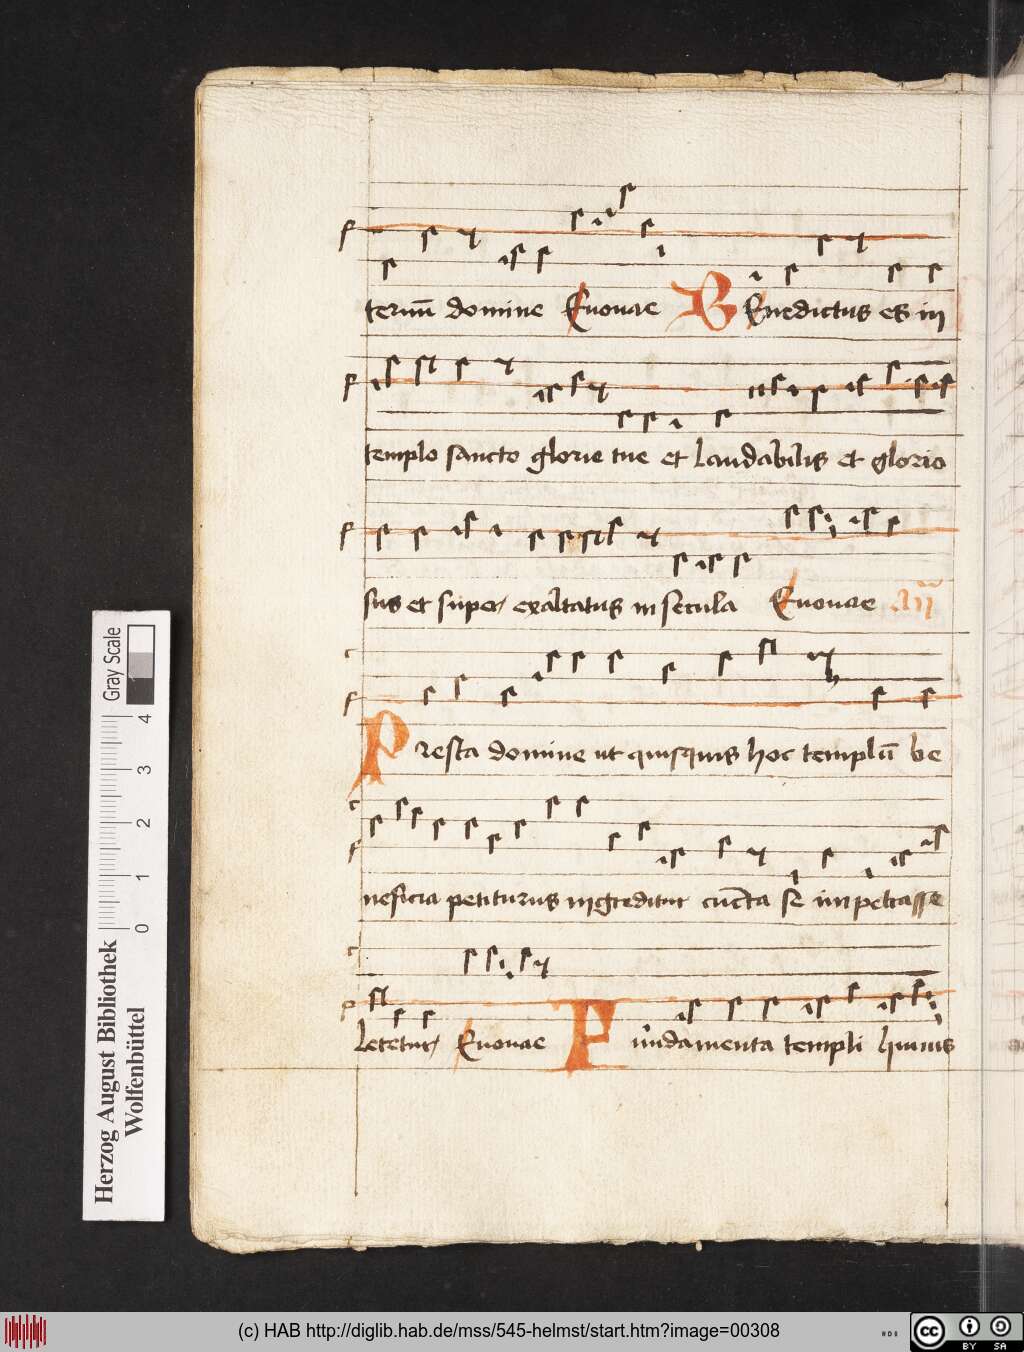 ternū domine Euouae BEnedictus es in
templo sancto glorie tue et laudabilis et glorio
sus et super exaltatus in secula Euouae Añ
Presta domine ut quisquis hoc templū be
neficia petiturus ingreditur cuncta se impetrasse
letetur Euouae Fundamenta templi huius
Gray Scale
4 3 2 1 0
Herzog August Bibliothek
Wolfenbüttel
(c) HAB http://diglib.hab.de/mss/545-helmst/start.htm?image=00308
cc BY SA